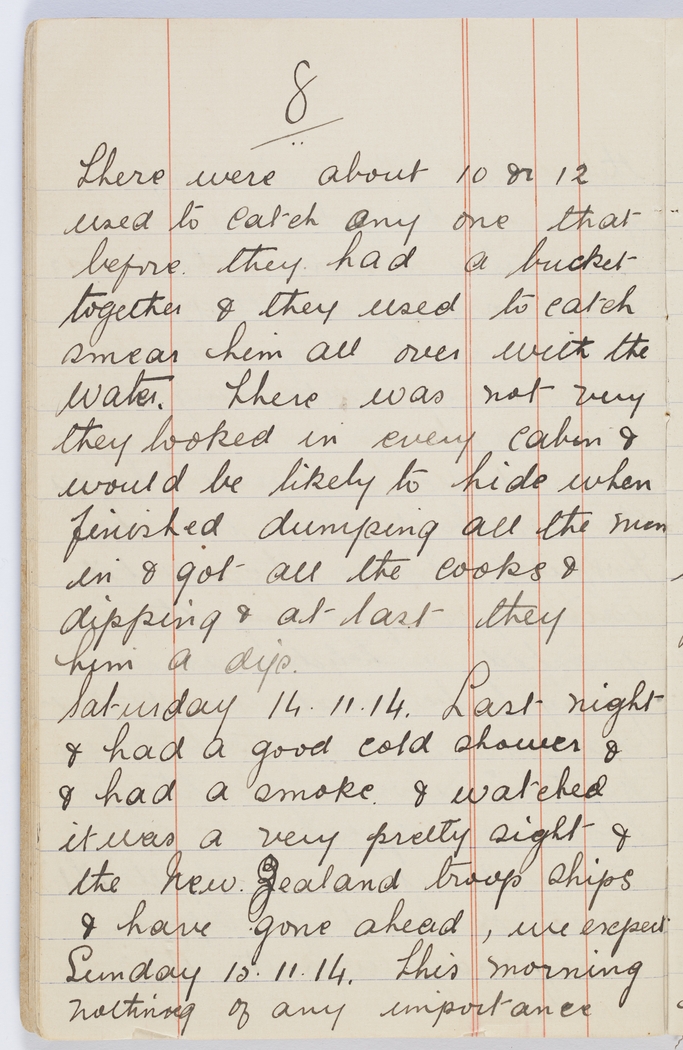 8
There were about 10 or 12
used to catch any one that
before. they had a bucket
together & they used to catch
smear him all over with the
water. There was not very
they looked in every cabin &
would be likely to hide when
finished dumping all the men
in & got all the cooks &
dipping & at last they
him a dip.
Saturday 14.11.14. Last night
& had a good cold shower &
& had a smoke. & watched
it was a very pretty sight &
the New. Zealand troop ships
& have gone ahead, we expect
Sunday 15.11.14. This morning
nothing of any importance